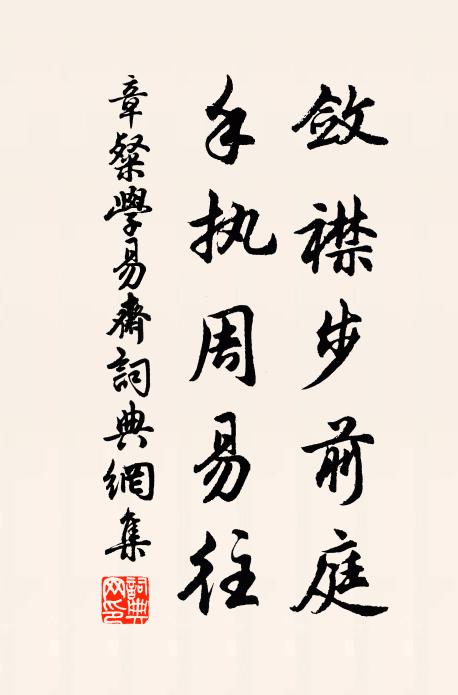 斂襟步前庭
手执周易往
章粲學易齋詞典網集
詞典
网印